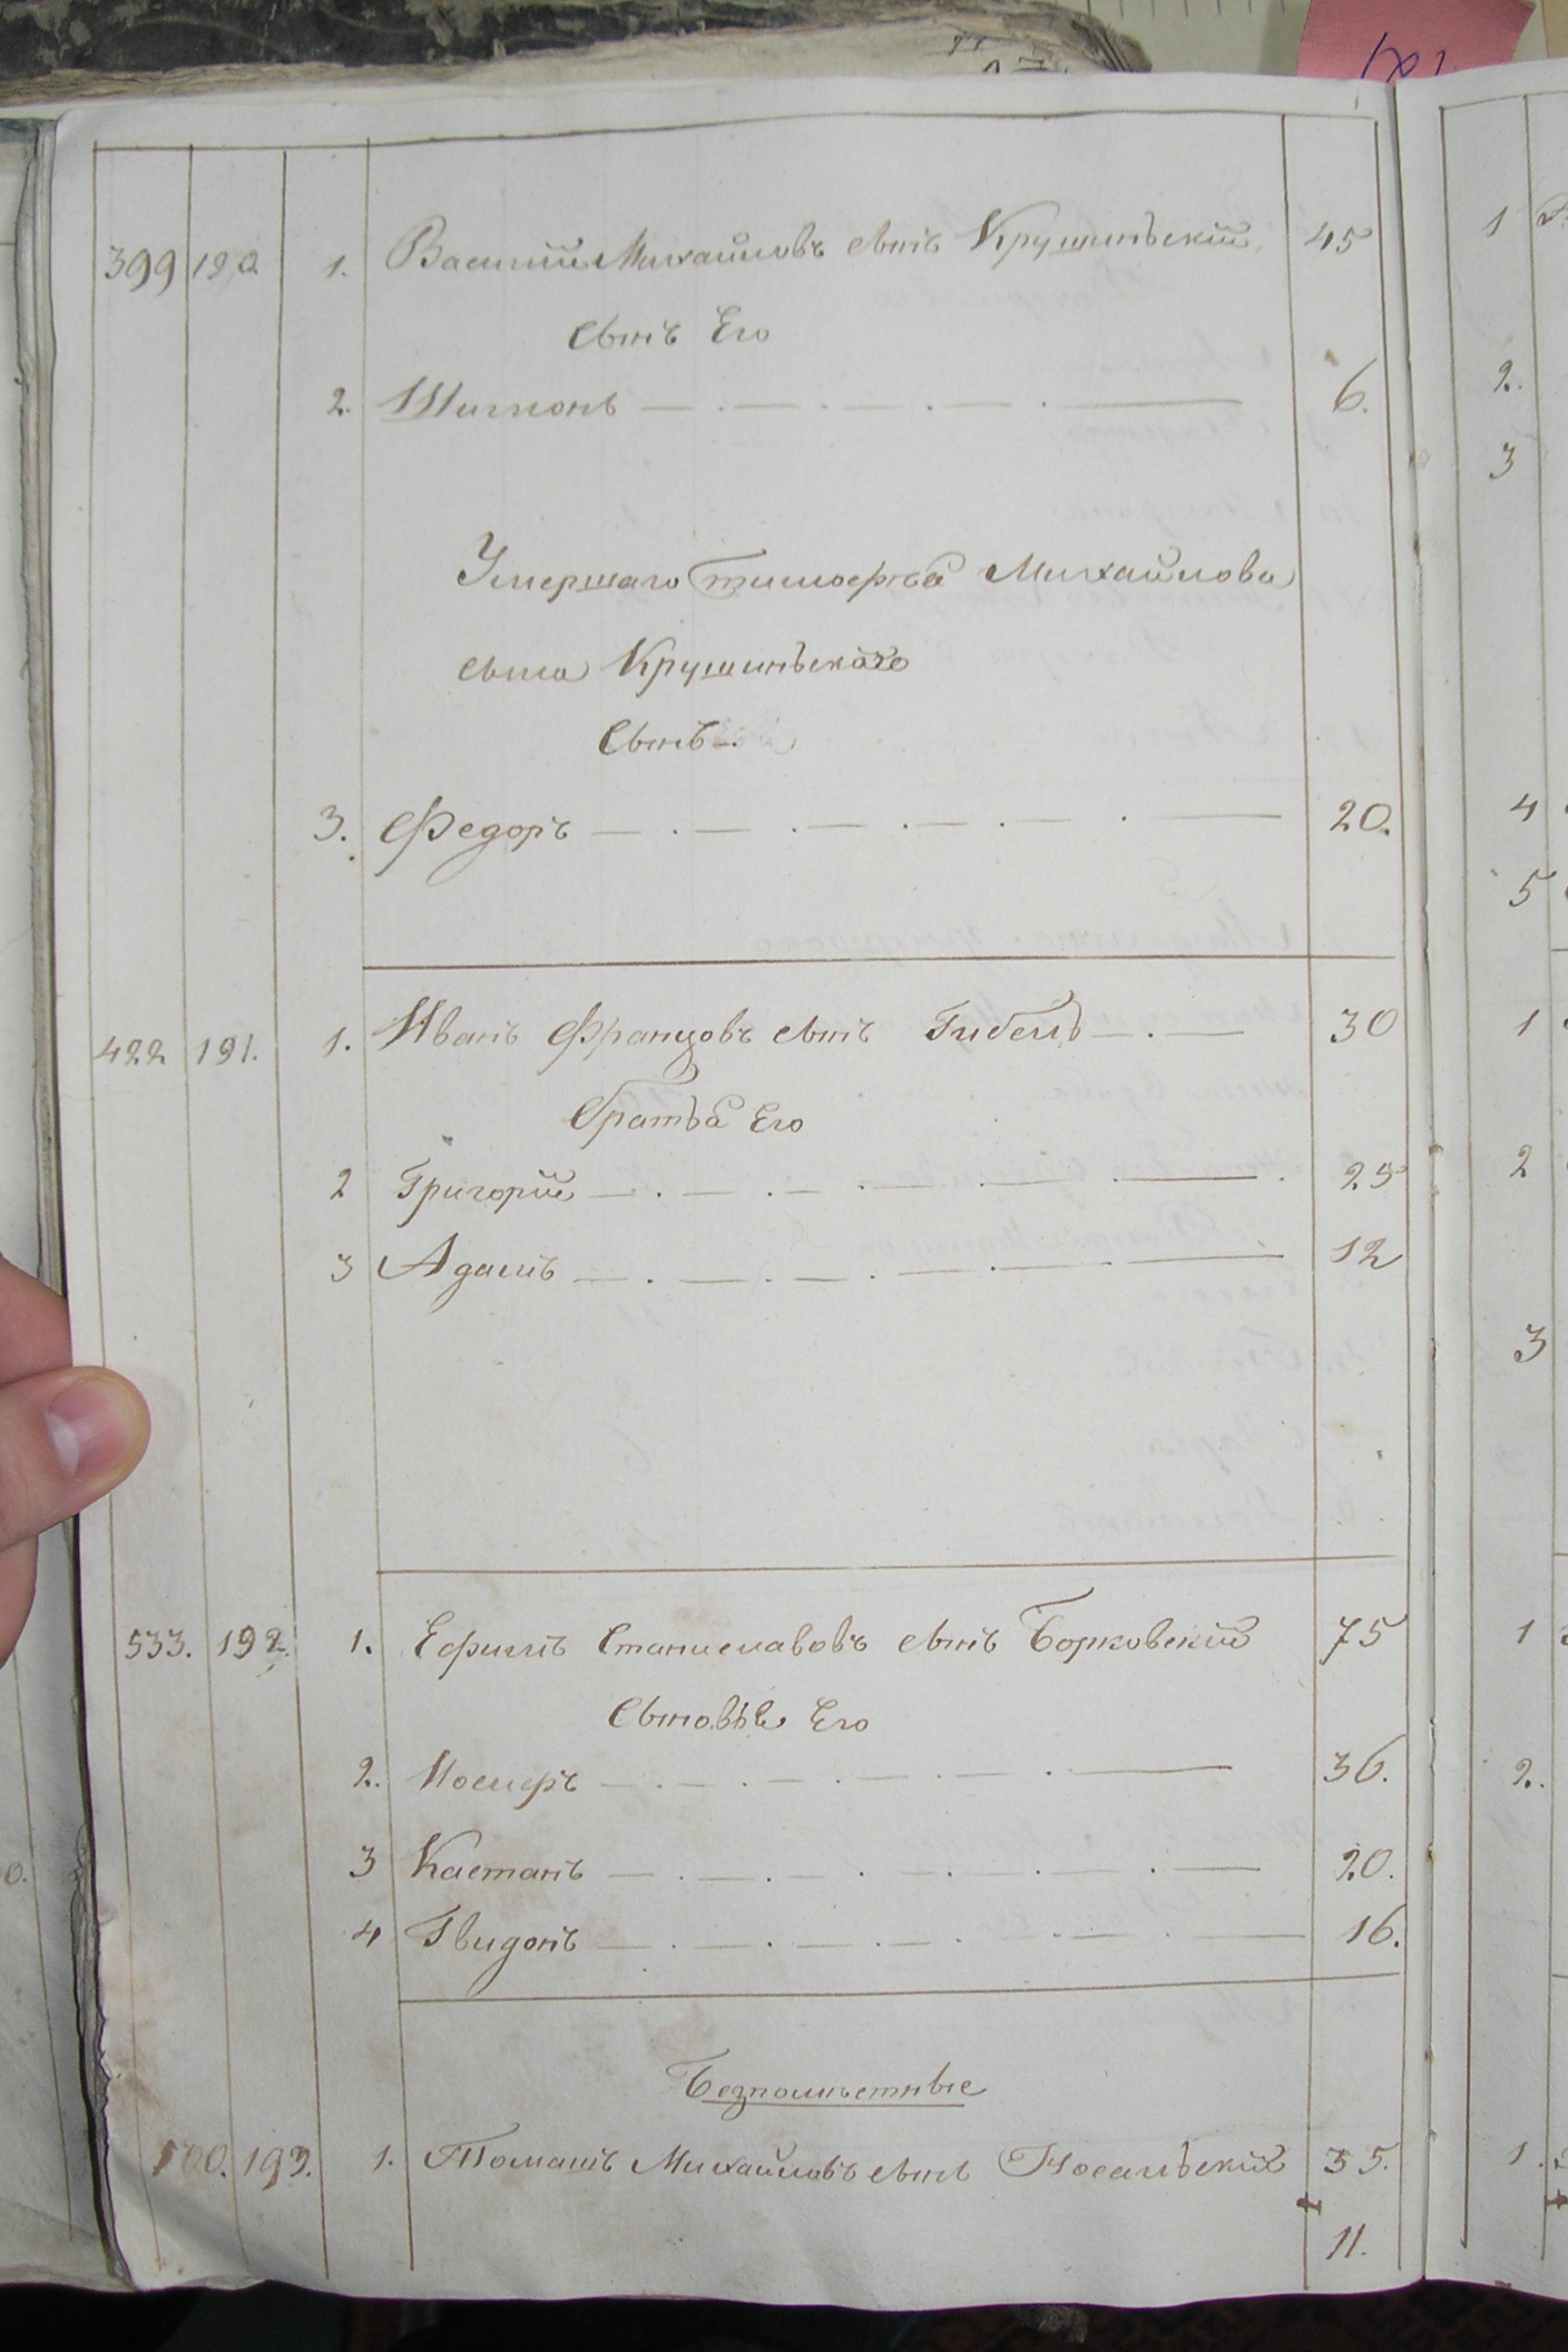 399 190 1. Василий Михайловъ сынъ Крушинскій 45
сынъ Его
2. Шимонъ 6.
Умершаго Тимофѣя Михайлова
сына Крушинскаго
Сынъ
3. Федоръ 20.
422 191. 1. Иванъ Францовъ сынъ Гибель 30
Братья Его
2 Григорій 25
3 Адамъ 12
533. 192. 1. Ефимъ Станиславовъ сынъ Борковскій 75
Сыновья Его
2. Иосифъ 36.
3 Каетанъ 20.
4 Гвидонъ 16.
Безпомѣстные
500. 193. 1. Томашъ Михайловъ сынъ Носальскій 35.
11.
1
2.
3
4
5
1
2
3
1
2.
1.